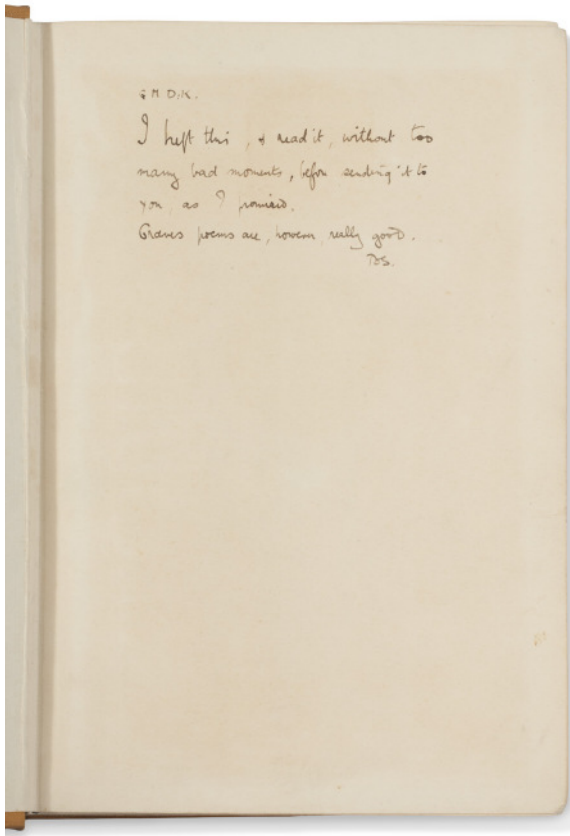 G M D.K.
I kept this, & read it, without too
many bad moments, before sending it to
you, as I promised.
Graves poems are, however, really good.
TES.